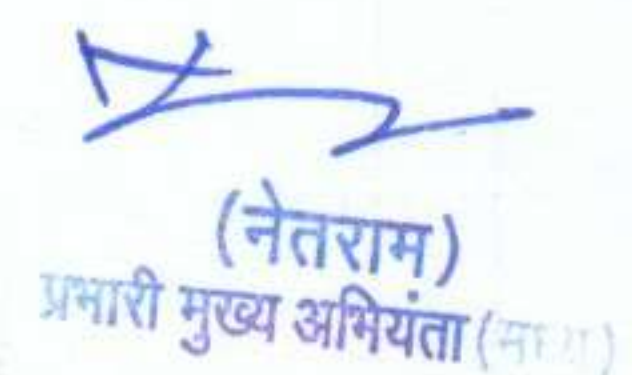 (नेतराम)
प्रभारी मुख्य अभियंता